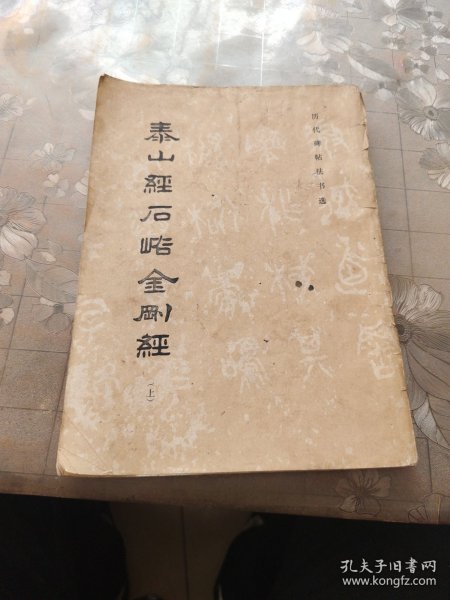 历代碑帖法书选
泰山經石峪金剛經
（上）
孔夫子旧书网
www.kongfz.com